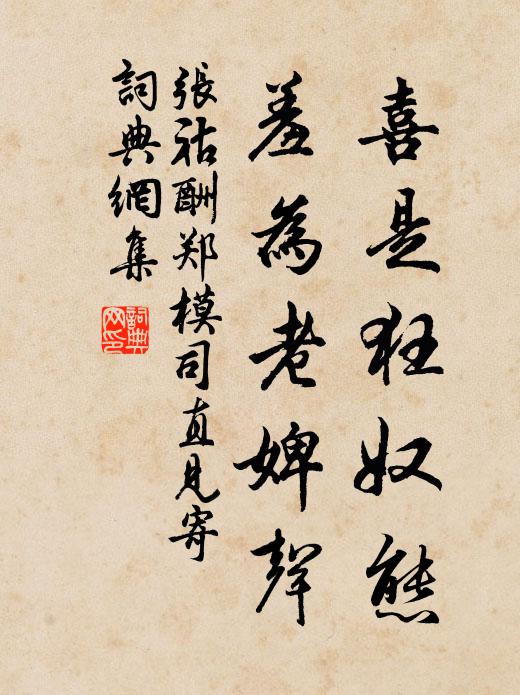 喜是狂奴態
羞為老婢聲
張祜酬郑模司直見寄
詞典網集
詞典
网印